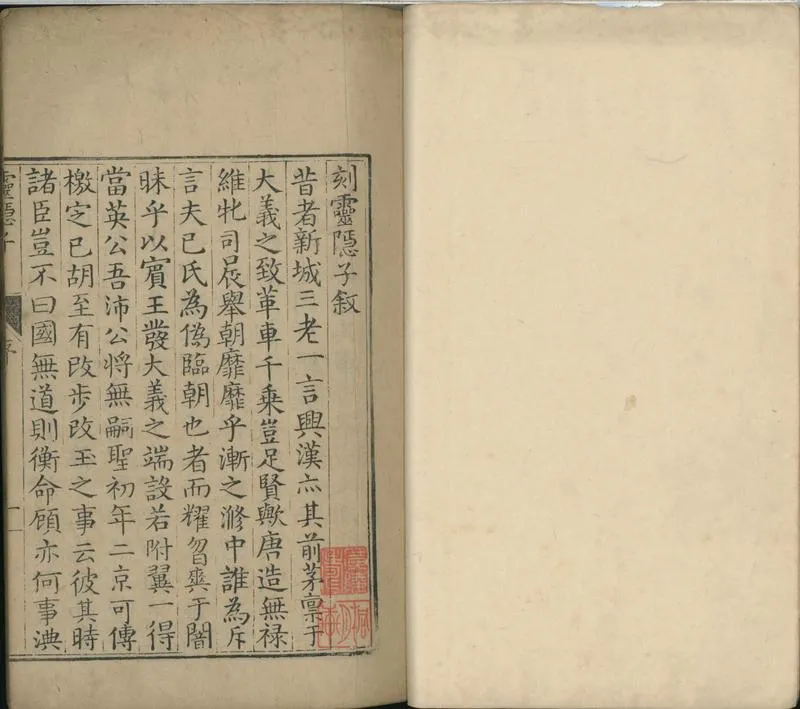 刻靈隱子敘
昔者新城三老一言興漢亦其前茅禀于
大義之致革車千乗豈足賢歟唐造無禄
維牝司晨舉朝靡靡乎漸之滫中誰為斥
言夫已氏為偽臨朝也者而耀曶奭于闇
昧乎以賓王發大義之端設若附翼一得
當英公吾沛公將無嗣聖初年二京可傳
檄定已胡至有改步改玉之事云彼其時
諸臣豈不曰國無道則衡命顧亦何事淟
靈隱子
序
一